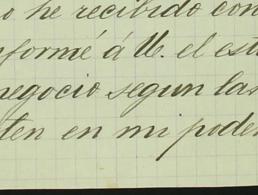 o he recibido con
nformé á V. el est
negocio segun las
ten en mi poder